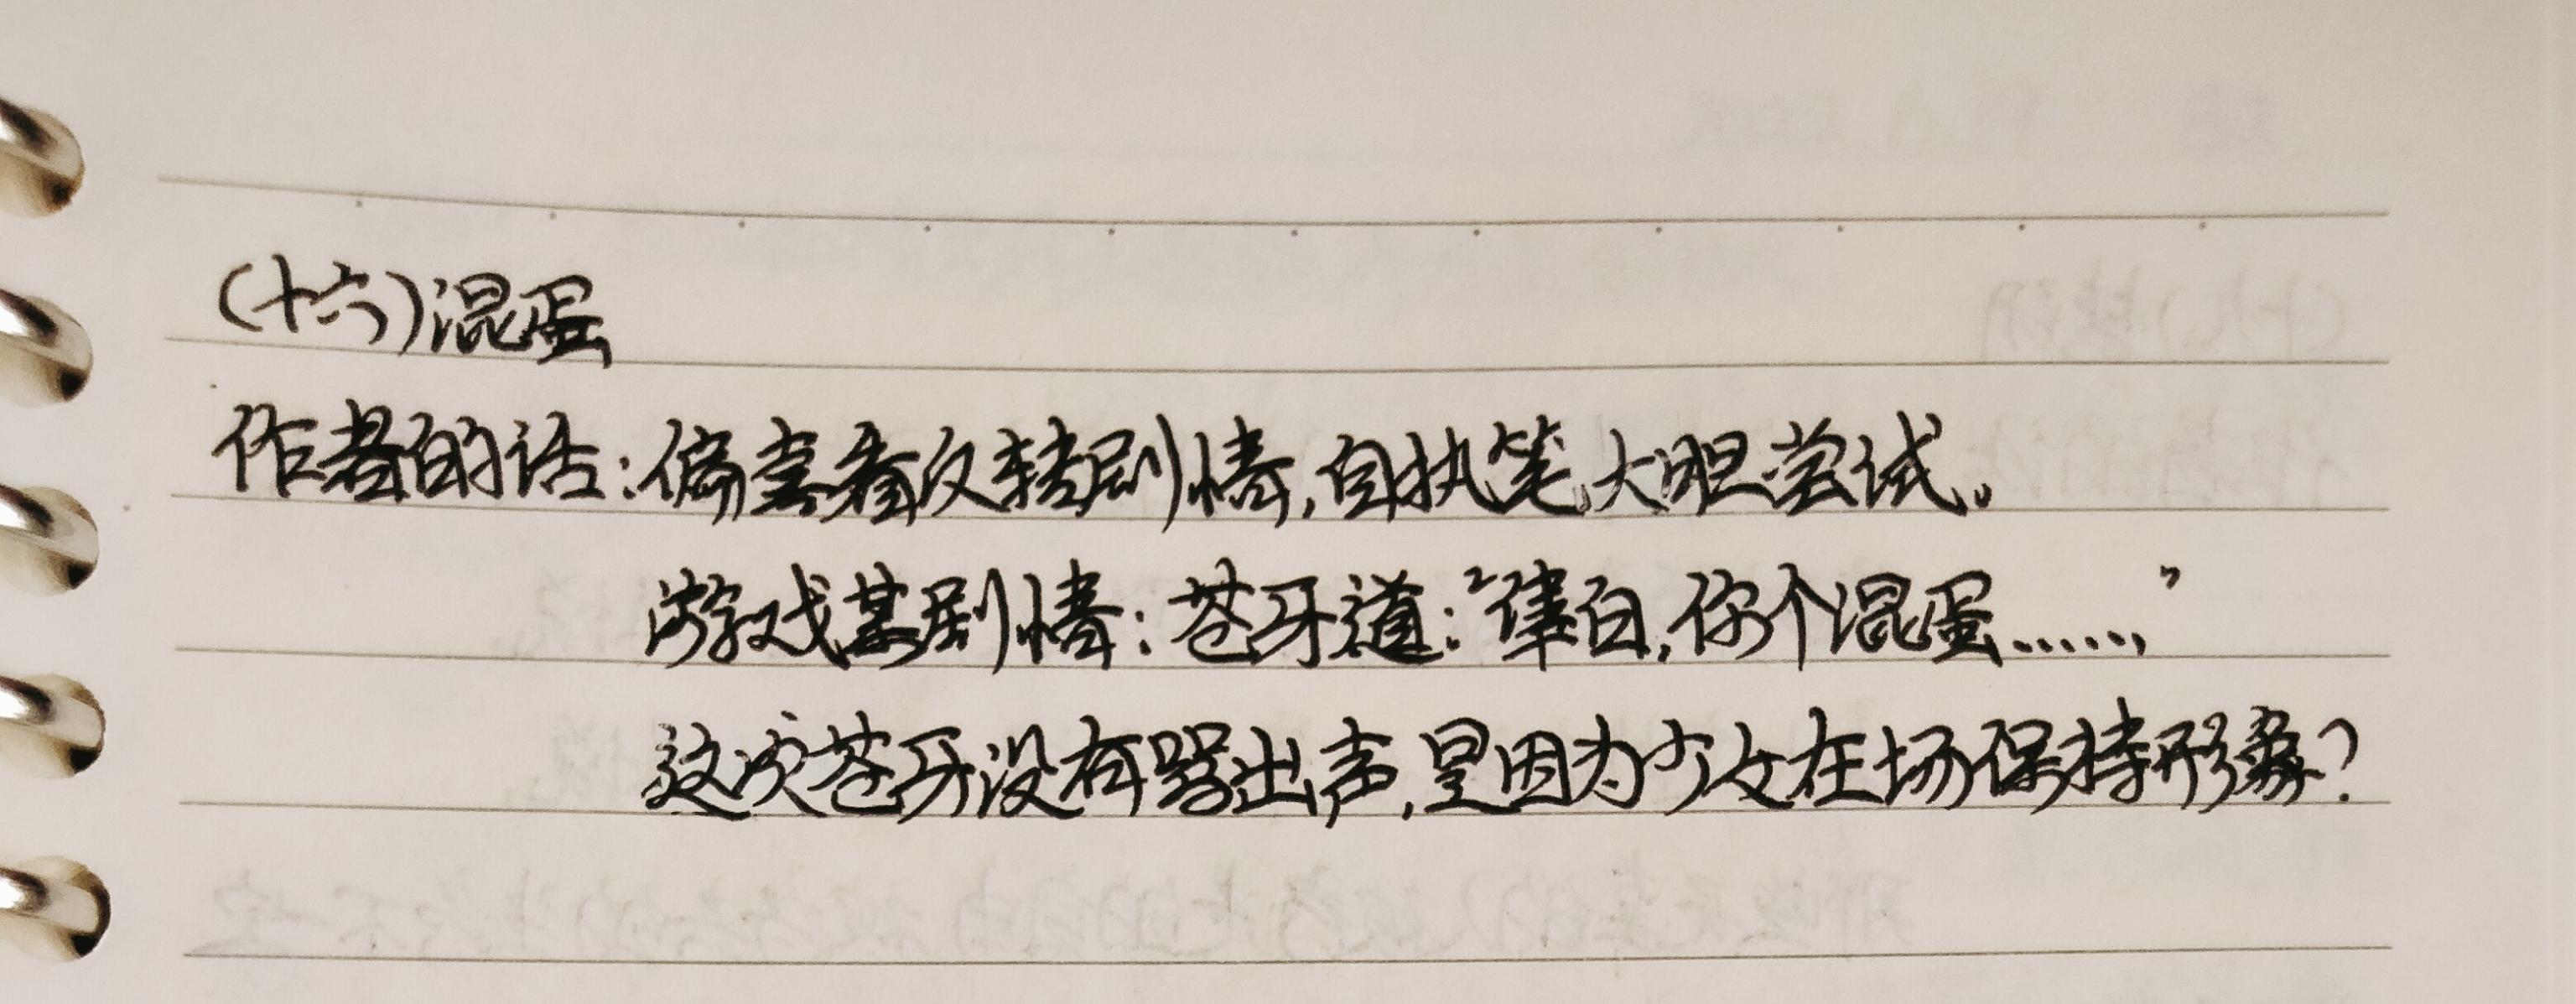 (十六)混蛋
作者的话:偏喜看反转剧情,自执笔大胆尝试。
游戏某剧情:苍牙道:“隼白,你个混蛋......”
这次苍牙没有骂出声,是因为少女在场保持形象?